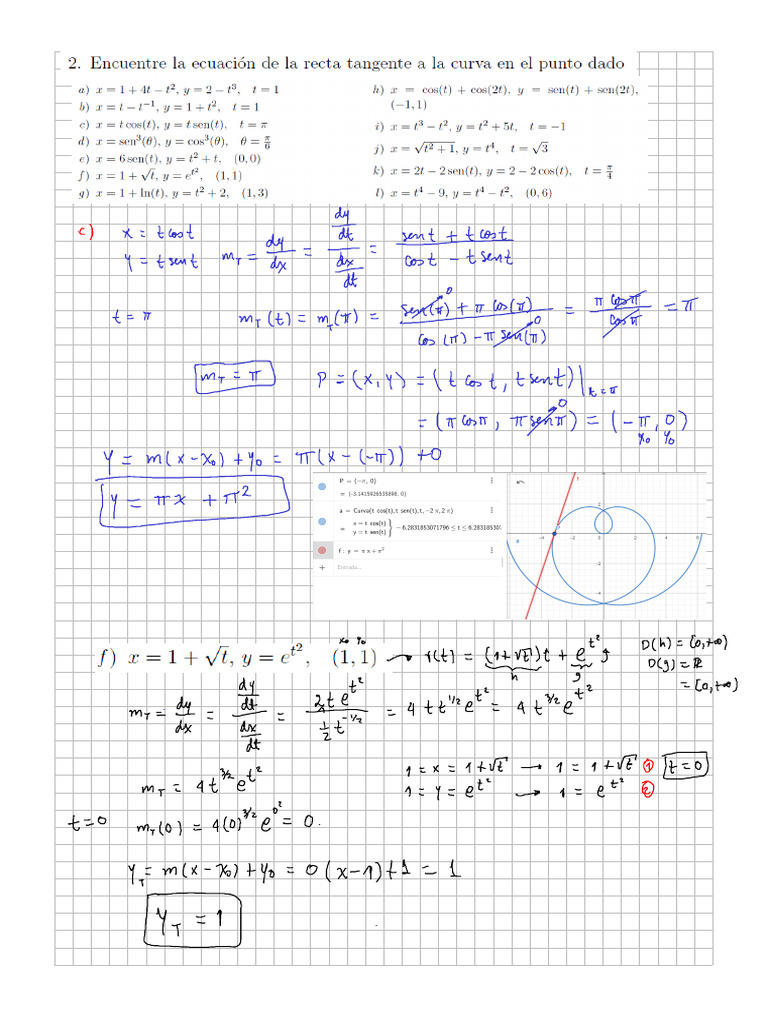 2. Encuentre la ecuación de la recta tangente a la curva en el punto dado
a) x = 1 + 4t − t², y = 2 − t³, t = 1
b) x = t − t⁻¹, y = 1 + t², t = 1
c) x = t cos(t), y = t sen(t), t = π
d) x = sen³(θ), y = cos³(θ), θ = π/6
e) x = 6 sen(t), y = t² + t, (0, 0)
f) x = 1 + √t, y = e^t², (1, 1)
g) x = 1 + ln(t), y = t² + 2, (1, 3)
h) x = cos(t) + cos(2t), y = sen(t) + sen(2t),
(−1, 1)
i) x = t³ − t², y = t² + 5t, t = −1
j) x = √(t² + 1), y = t⁴, t = √3
k) x = 2t − 2 sen(t), y = 2 − 2 cos(t), t = π/4
l) x = t⁴ − 9, y = t⁴ − t², (0, 6)
c) x = t cos t
y = t sen t
m_T = dy/dx = (dy/dt)/(dx/dt) = (sen t + t cos t)/(cos t − t sen t)
t = π m_T(t) = m_T(π) = (sen(π) + π cos(π))/(cos(π) − π sen(π)) = (π cos π)/(cos π) = π
0 0
m_T = π P = (x, y) = (t cos t, t sen t)|t=π
= (π cos π, π sen π) = (−π, 0)
0 x₀ y₀
y = m(x − x₀) + y₀ = π(x − (−π)) + 0
y = πx + π²
P = (−π, 0)
= (-3.1415926535898, 0)
a = Curva(t cos(t), t sen(t), t, −2 π, 2 π)
= x = t cos(t) y = t sen(t) } −6.2831853071796 ≤ t ≤ 6.28318530
f : y = π x + π²
+ Entrada...
x₀ y₀
f) x = 1 + √t, y = e^t², (1, 1) → r(t) = (1+√t)î + e^t² ĵ
h g
D(h) = [0, +∞)
D(g) = ℝ
= [0, +∞)
m_T = dy/dx = (dy/dt)/(dx/dt) = (2t e^t²)/(½ t^−1/2) = 4 t t^1/2 e^t² = 4 t^3/2 e^t²
m_T = 4 t^3/2 e^t²
1 = x = 1 + √t → 1 = 1 + √t ① t = 0
1 = y = e^t² → 1 = e^t² ②
t = 0 m_T(0) = 4(0)^3/2 e^0² = 0.
y_T = m(x − x₀) + y₀ = 0(x − 1) + 1 = 1
y_T = 1